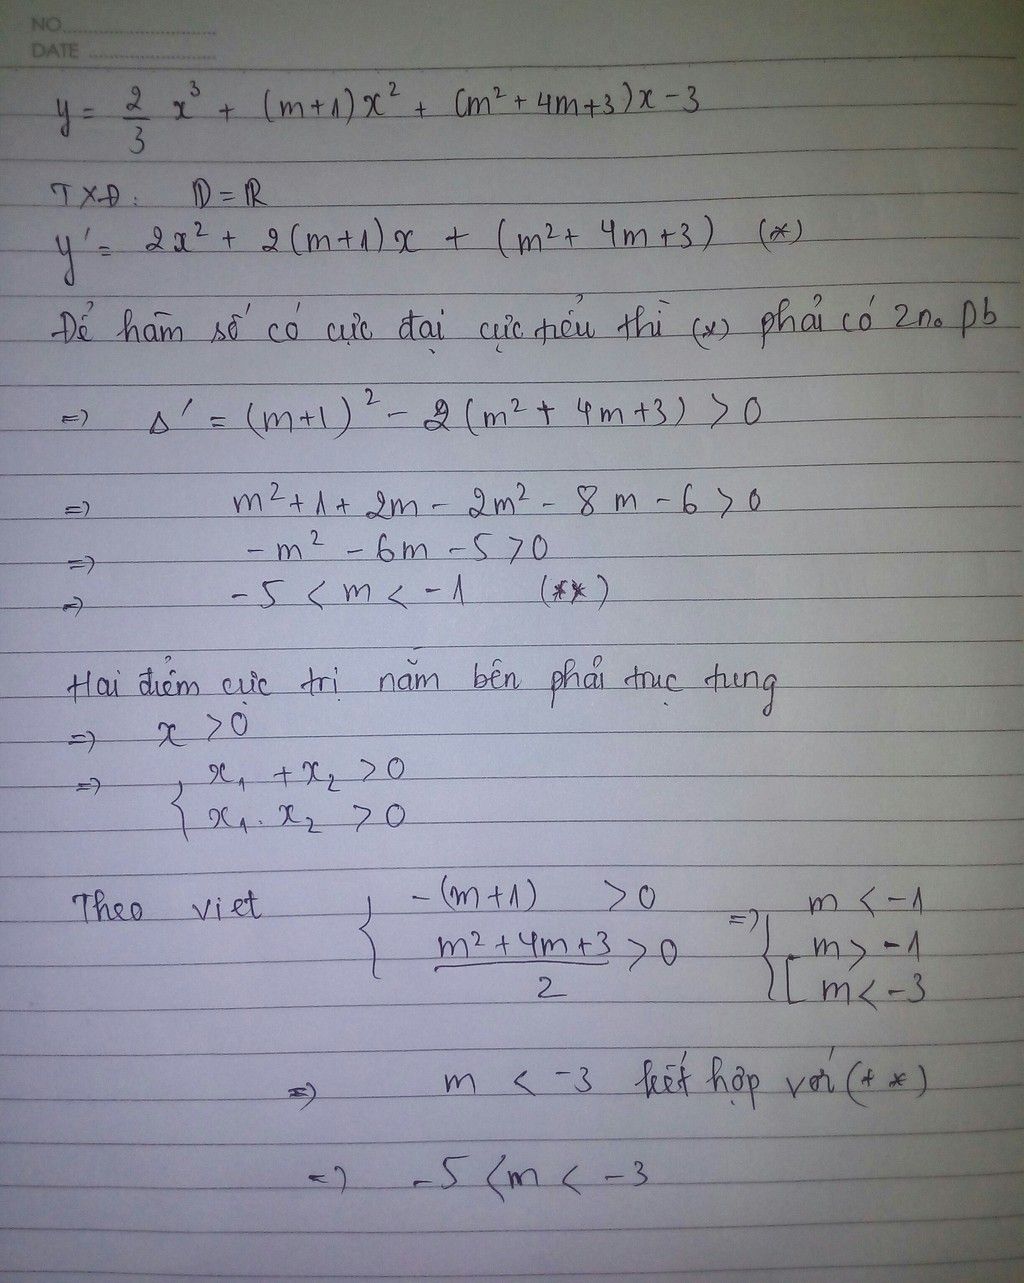 NO.
DATE
y = 2/3 x³ + (m+1)x² + (m² + 4m+3)x - 3
TXĐ: D = ℝ
y' = 2x² + 2(m+1)x + (m² + 4m+3) (*)
Để hàm số có cực đại cực tiểu thì (*) phải có 2 no pb
=> Δ' = (m+1)² - 2(m² + 4m+3) > 0
=> m² + 1 + 2m - 2m² - 8m - 6 > 0
=> -m² - 6m - 5 > 0
=> -5 < m < -1 (**)
Hai điểm cực trị nằm bên phải trục tung
=> x > 0
=> { x₁ + x₂ > 0
x₁. x₂ > 0
Theo viet { -(m+1) > 0 => { m < -1
(m² + 4m+3)/2 > 0 [ m > -1
m < -3
=> m < -3 kết hợp với (**)
=> -5 < m < -3